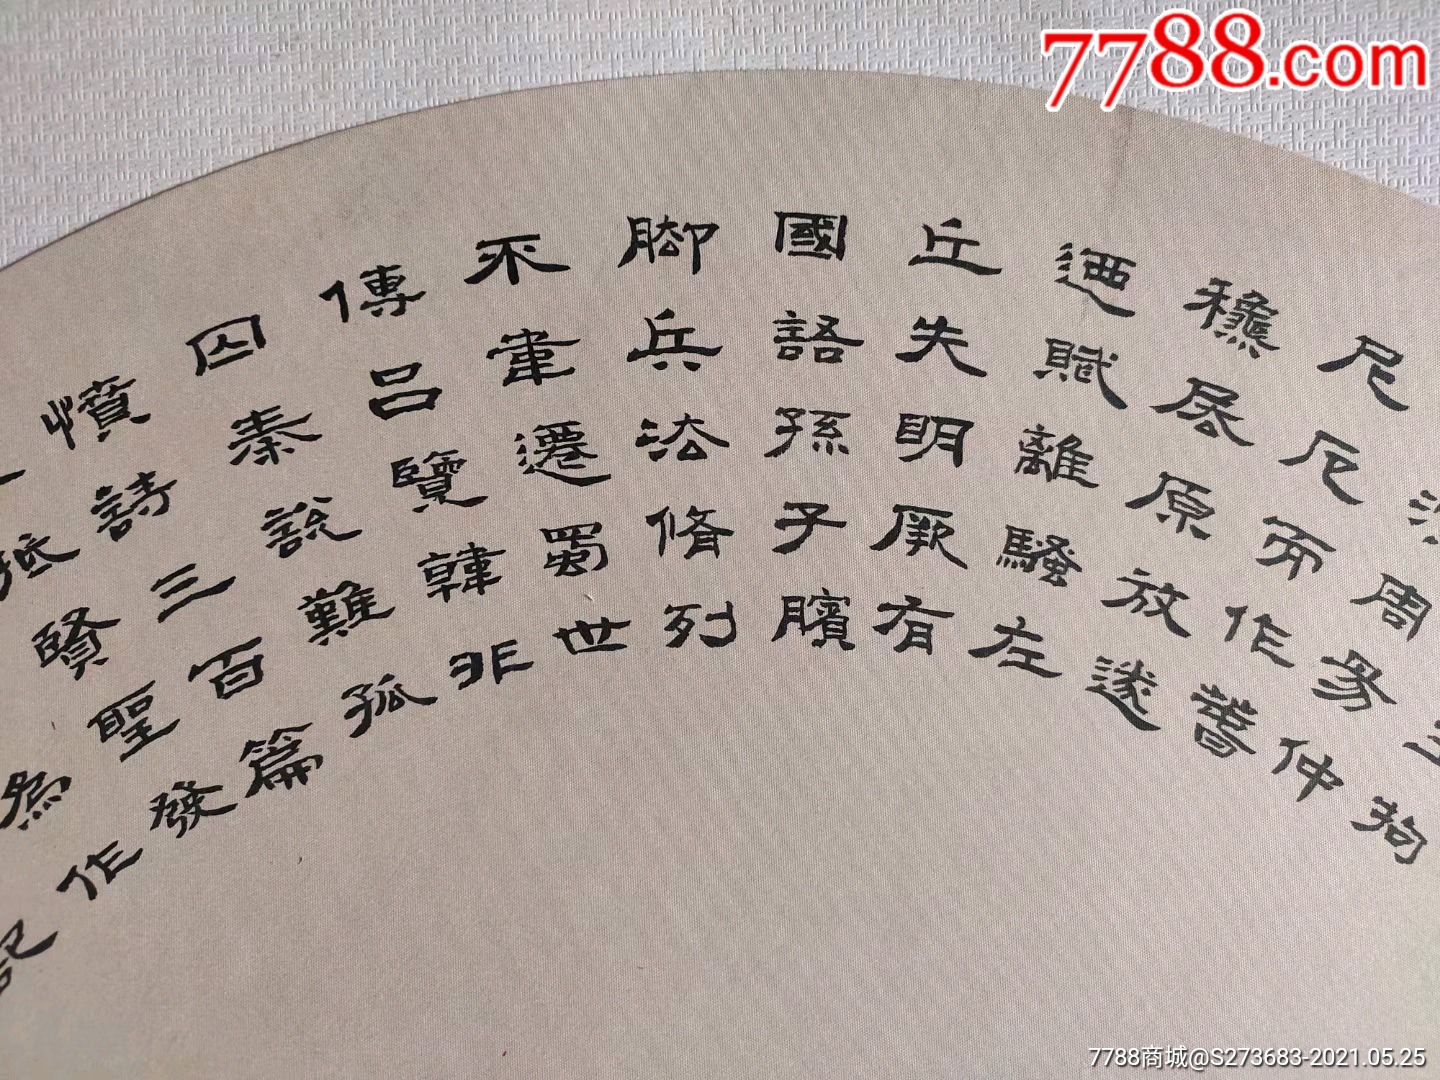 7788.com
王拘
周易仲
尼厄而作春
秋居原放逐
迺賦離騷左
丘失明厥有
國語孫子臏
腳兵法脩列
不韋遷蜀世
傳呂覽韓非
囚秦說難孤
憤詩三百篇
抵賢聖發
為作
記
7788商城@S273683-2021.05.25